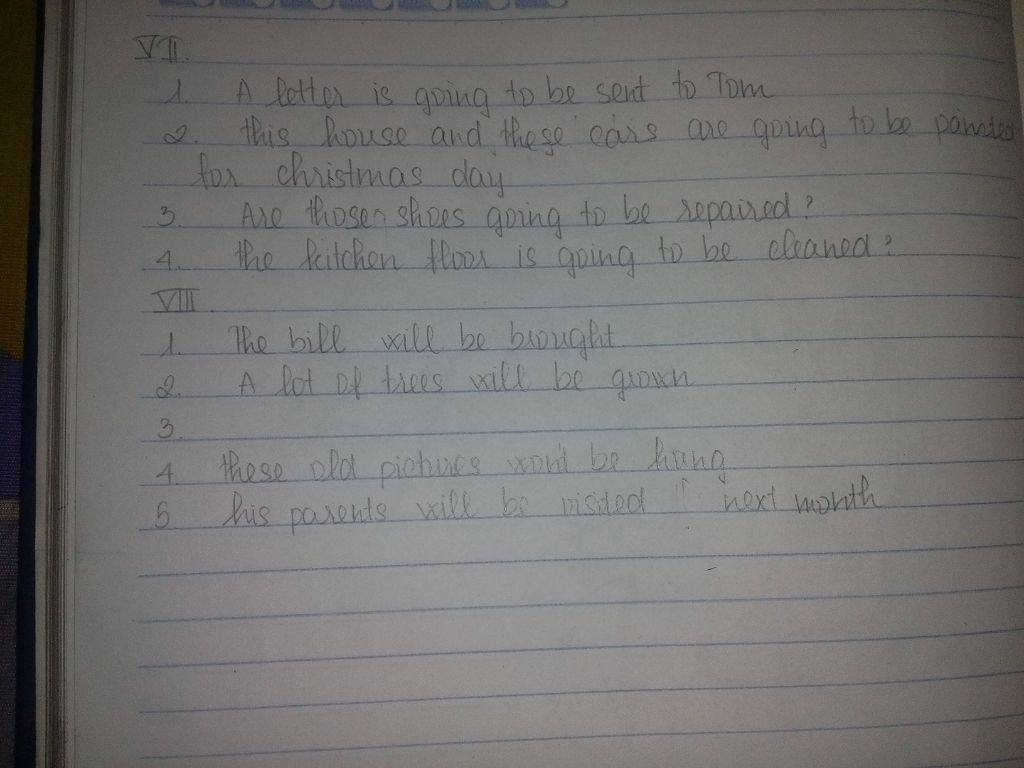 VII.
1. A letter is going to be sent to Tom
2. this house and these cars are going to be painted
for christmas day
3. Are those shoes going to be repaired?
4. the kitchen floor is going to be cleaned?
VIII
1. The bill will be brought.
2. A lot of trees will be grown
3.
4 these old pictures won't be hung
5 his parents will be visited next month